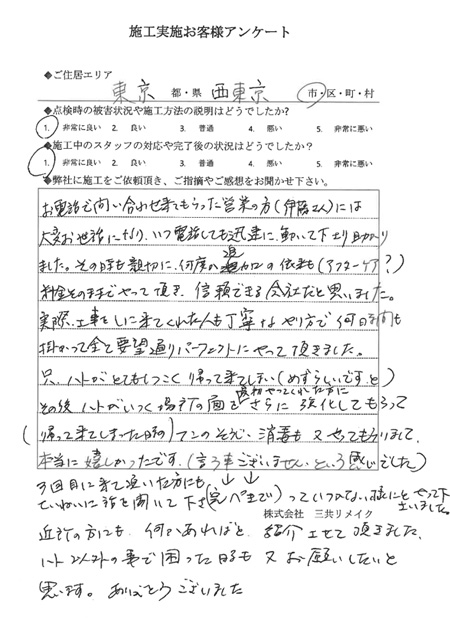 施工実施お客様アンケート
◆ご住居エリア
東京 都・県 西東京 市・区・町・村
◆点検時の被害状況や施工方法の説明はどうでしたか?
1. 非常に良い 2. 良い 3. 普通 4. 悪い 5. 非常に悪い
◆施工中のスタッフの対応や完了後の状況はどうでしたか?
1. 非常に良い 2. 良い 3. 普通 4. 悪い 5. 非常に悪い
◆弊社に施工をご依頼頂き、ご指摘やご感想をお聞かせ下さい。
お電話で問い合わせ来てもらった営業の方(伊藤さん)には
大変お世話になり、いつ電話しても迅速に、動いて下さり助かり
ました。その日時も親切に、何度か追加の依頼も(アフターケア?)
料金そのままでやって頂き、信頼できる会社だと思いました。
実際、工事をしに来てくれた人も丁寧なやり方で何日間も
掛かって全て要望通りパーフェクトにやって頂きました。
只、ハトがとてもしつこく帰って来てしまい(めずらしいですと)
最初やってくれた方に
その後ハトがいつく場所の面をさらに強化してもらって
(帰って来てしまった時の)フンのそうじ、消毒も又やってもらいまして、
本当に嬉しかったです。(言う事ございません、という感じでした)
3回目に来て頂いた方にも
ていねいに話を聞いて下さ(完ペキまで)っていつかない様にとやって下さいました。
株式会社 三共リメイク
近所の方にも、何かあればと、紹介させて頂きました、
ハト以外の事で困った時も又お願いしたいと
思います。ありがとうございました